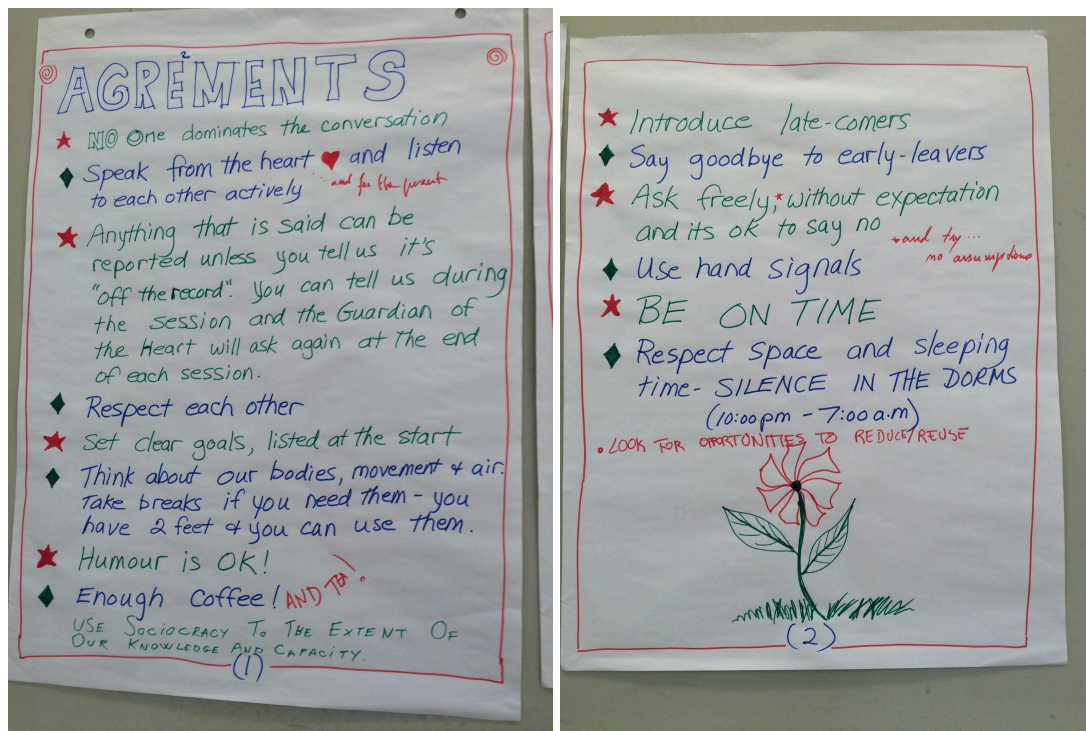 AGRE²MENTS
NO One dominates the conversation
Speak from the heart ♥ and listen
to each other actively
and for the present
Anything that is said can be
reported unless you tell us it's
"off the record". You can tell us during
the session and the Guardian of
the Heart will ask again at the end
of each session.
Respect each other
Set clear goals, listed at the start
Think about our bodies, movement & air.
Take breaks if you need them - you
have 2 feet & you can use them.
Humour is OK!
Enough Coffee! AND TEA!
USE SOCIOCRACY TO THE EXTENT OF
OUR KNOWLEDGE AND CAPACITY.
(1)
Introduce late-comers
Say goodbye to early-leavers
Ask freely,* without expectation
and its ok to say no
* and try...
no assumptions
Use hand signals
BE ON TIME
Respect space and sleeping
time - SILENCE IN THE DORMS
(10:00pm - 7:00a.m)
• LOOK FOR OPPORTONITIES TO REDUCE/REUSE
(2)